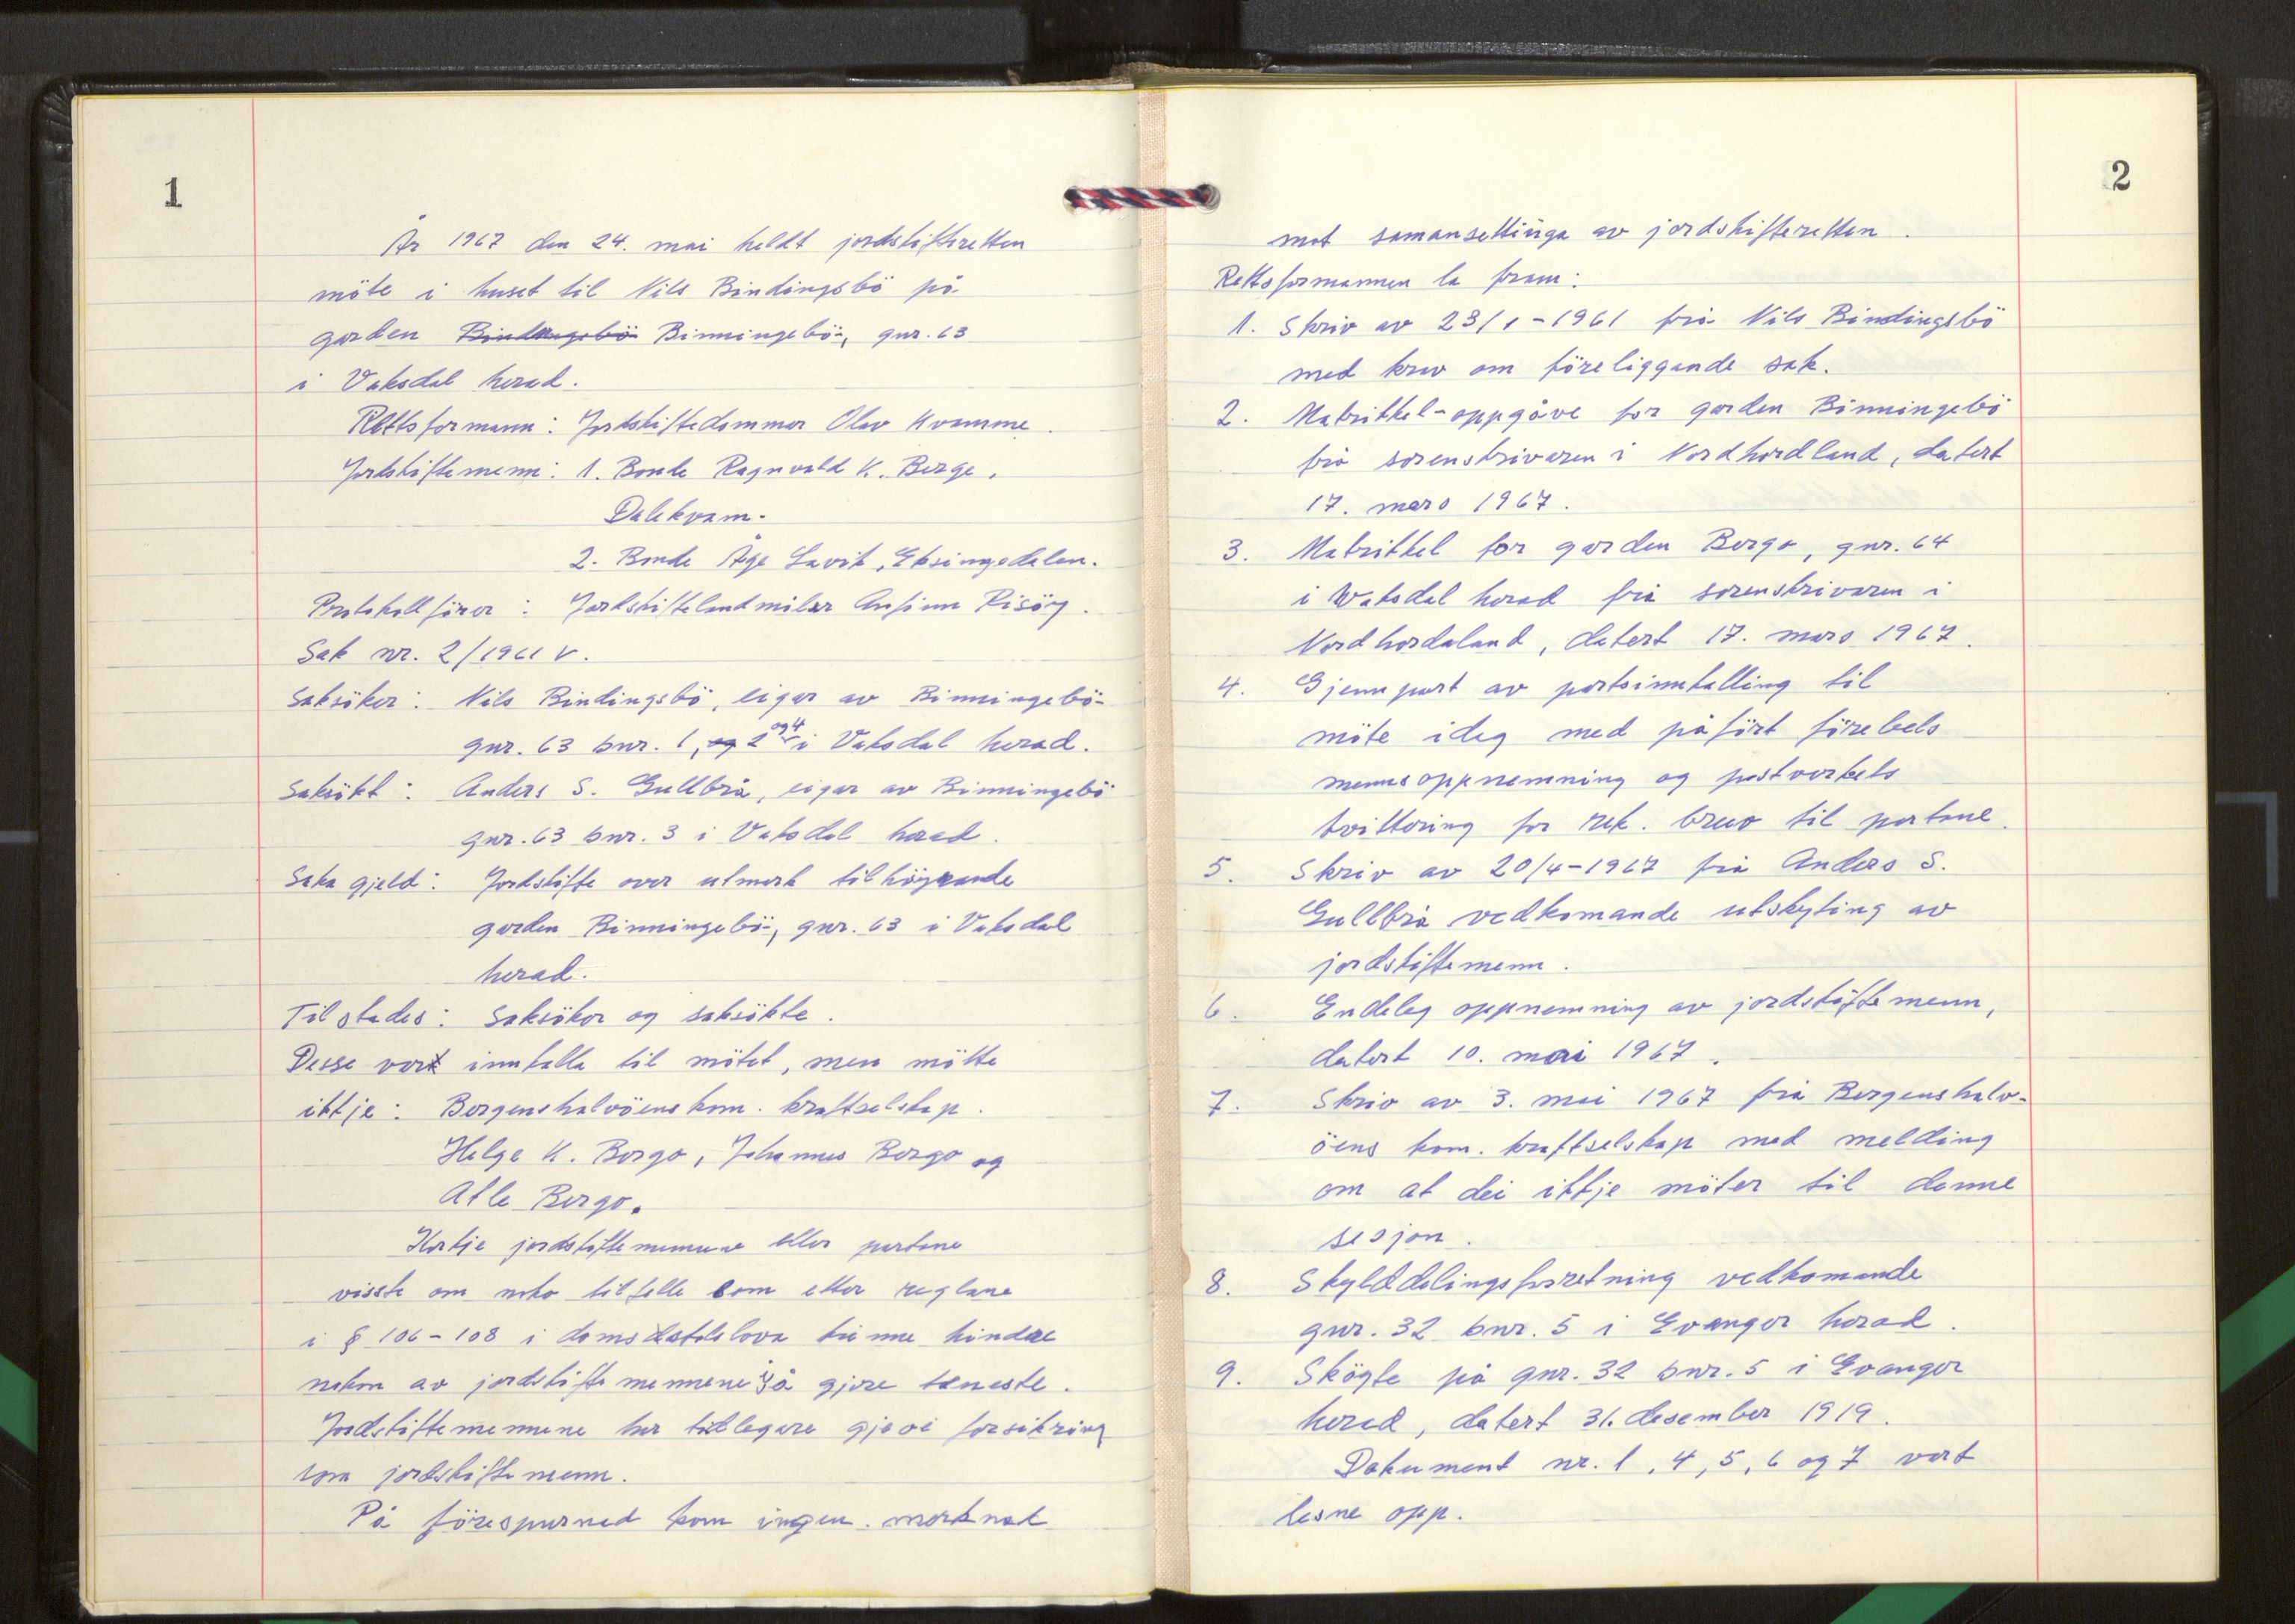 1
År 1967 den 24. mai heldt jordskifteretten
möte i huset til Nils Bindingsbö på
garden Bindingsbö Binningebö, gnr. 63
i Vaksdal herad.
Rettsformann: Jordskiftedommer Olav Kvamme.
Jordskiftemenn: 1. Bonde Ragnvald K. Berge,
Dalekvam.
2. Bonde Åge Lavik, Eksingedalen.
Protokollförer: Jordskiftelandmålar Anfinn Risöy.
Sak nr. 2/1961 V.
Saksöker: Nils Bindingsbö, eigar av Binningebö
gnr. 63 bnr. 1, og 2 og 4 i Vaksdal herad.
Saksökt: Anders S. Gullbrå, eigar av Binningebö
gnr. 63 bnr. 3 i Vaksdal herad.
Saka gjeld: Jordskifte over utmark tilhöyrande
garden Binningebö, gnr. 63 i Vaksdal
herad.
Til stades: Saksöker og saksökte.
Desse vart innkalla til mötet, men mötte
ikkje: Bergenshalvöens kom. kraftselskap.
Helge K. Bergo, Johannes Bergo og
Atle Bergo.
Korkje jordskiftemennene eller partane
visste om noko tilfelle som etter reglane
i § 106-108 i domstolslova kunne hindre
nokon av jordskiftemennene i å gjere teneste.
Jordskiftemennene har tidlegare gjeve forsikring
som jordskiftemenn.
På förespurnad kom ingen merknad
2
mot samansettinga av jordskifteretten.
Rettsformannen la fram:
1. Skriv av 23/1-1961 frå Nils Bindingsbö
med krav om föreliggande sak.
2. Matrikkel-oppgåve for garden Binningebö
frå sorenskrivaren i Nordhordland, datert
17. mars 1967.
3. Matrikkel for garden Bergo, gnr. 64
i Vaksdal herad frå sorenskrivaren i
Nordhordaland, datert 17. mars 1967.
4. Gjennpart av partsinnkalling til
möte idag med påfört förebels
mennsoppnemning og postverkets
kvittering for rek. brev til partane.
5. Skriv av 20/4-1967 frå Anders S.
Gullbrå vedkomande utskyting av
jordskiftemenn.
6. Endeleg oppnemning av jordskiftemenn,
datert 10. mai 1967.
7. Skriv av 3. mai 1967 frå Bergenshalv-
öens kom. kraftselskap med melding
om at dei ikkje möter til denne
sesjon.
8. Skylddelingsforretning vedkomande
gnr. 32 bnr. 5 i Evanger herad.
9. Sköyte på gnr. 32 bnr. 5 i Evanger
herad, datert 31. desember 1919.
Dokument nr. 1, 4, 5, 6 og 7 vart
lesne opp.